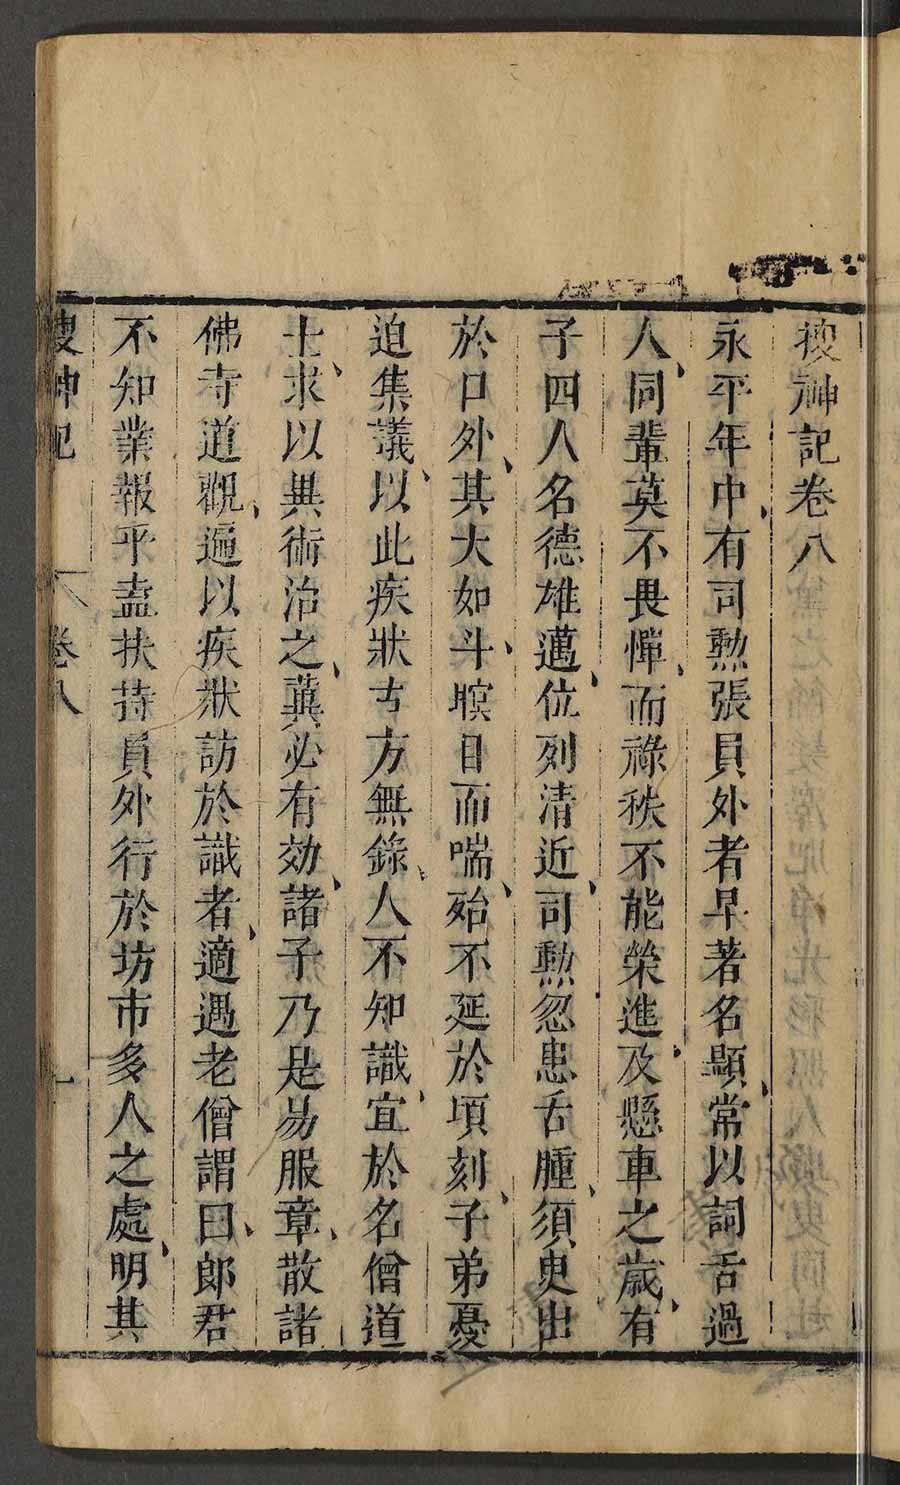 搜神記卷八
永平年中、有司勲張員外者早著名顯、常以詞舌過
人、同輩莫不畏憚、而祿秩不能榮進、及懸車之歲、有
子四人名德雄邁、位列清近、司勲忽患舌腫、須臾出
於口外、其大如斗、瞑目而喘、殆不延於頃刻、子弟憂
迫集議、以此疾狀古方無錄、人不知識、宜於名僧道
士、求以異術治之、冀必有効、諸子乃是易服章、散諸
佛寺道觀、遍以疾狀訪於識者、適遇老僧謂曰、郎君
不知業報乎盍扶持員外行於坊市多人之處、明其
搜神記 卷八 一